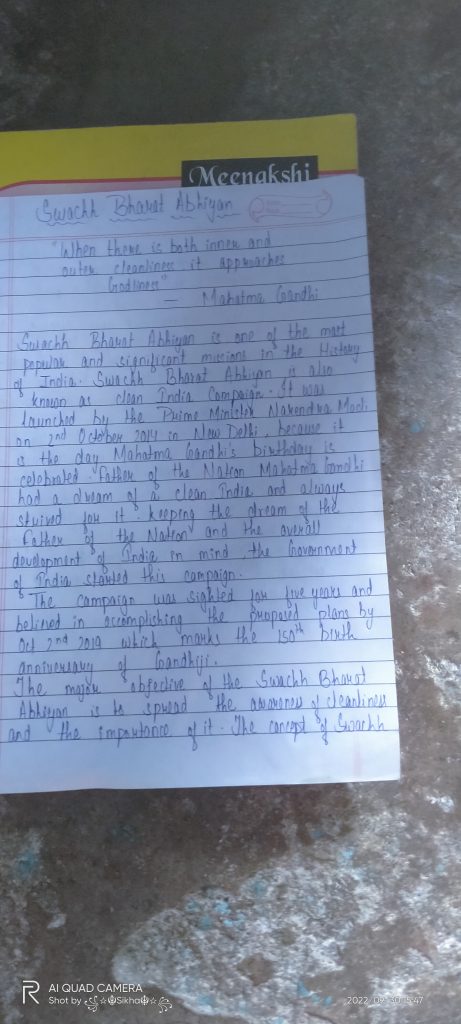 Meenakshi
Swachh Bharat Abhiyan
"When there is both inner and
outer cleanliness it approaches
Godliness"
— Mahatma Gandhi
Swachh Bharat Abhiyan is one of the most
popular and significant missions in the History
of India. Swachh Bharat Abhiyan is also
known as clean India Campaign. It was
launched by the Prime Minister Narendra Modi
on 2nd October 2014 in New Delhi, because it
is the day Mahatma Gandhi's birthday is
celebrated. Father of the Nation Mahatma Gandhi
had a dream of a clean India and always
strived for it. keeping the dream of the
Father of the Nation and the overall
development of India in mind, the Government
of India started this campaign.
The campaign was sighted for five years and
believed in accomplishing the proposed plans by
Oct 2nd 2019 which marks the 150th birth
anniversary of Gandhiji.
The major objective of the Swachh Bharat
Abhiyan is to spread the awareness of cleanliness
and the importance of it. The concept of Swachh
AI QUAD CAMERA
Shot by Sikha